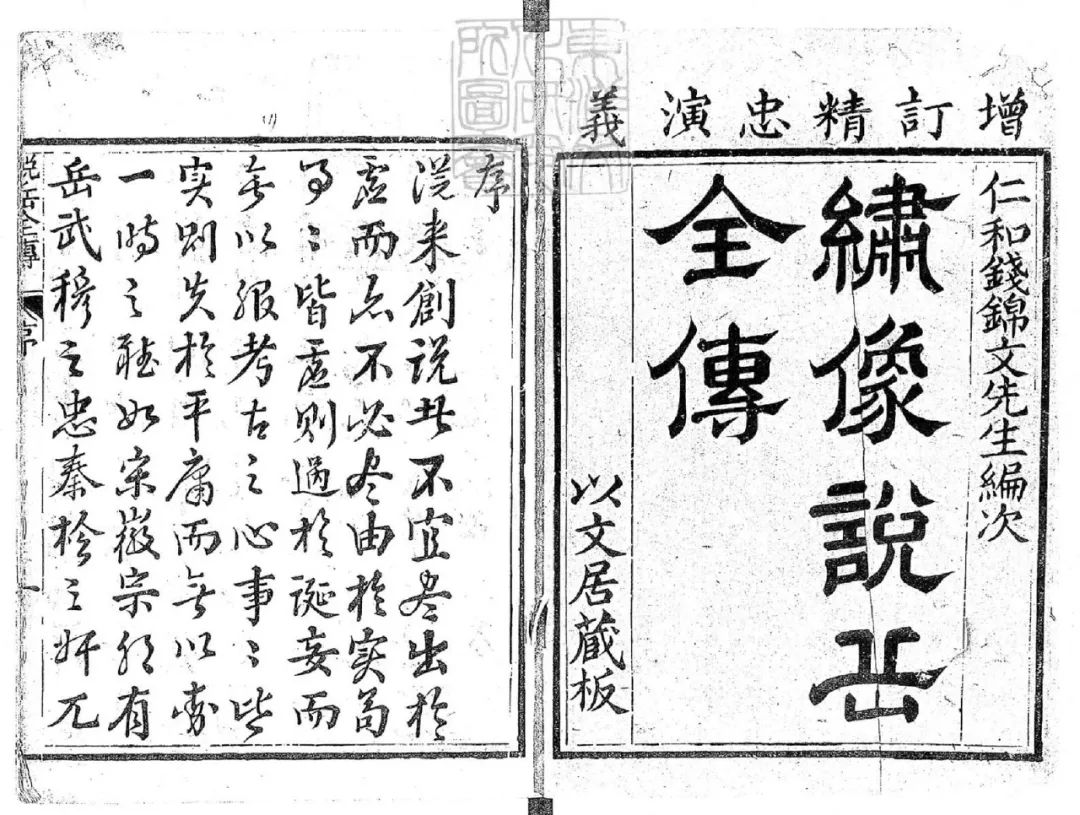 增訂精忠演義
仁和錢錦文先生編次
繡像說岳
全傳
以文居藏板
序
從來創說者不宜盡出於
虛而亦不必盡由於實苟
事〻皆虛則過於誕妄而
無以服考古之心事〻皆
實則失於平庸而無以動
一時之聽如宋徽宗朝有
岳武穆之忠秦檜之奸兀
說岳全傳
序
一